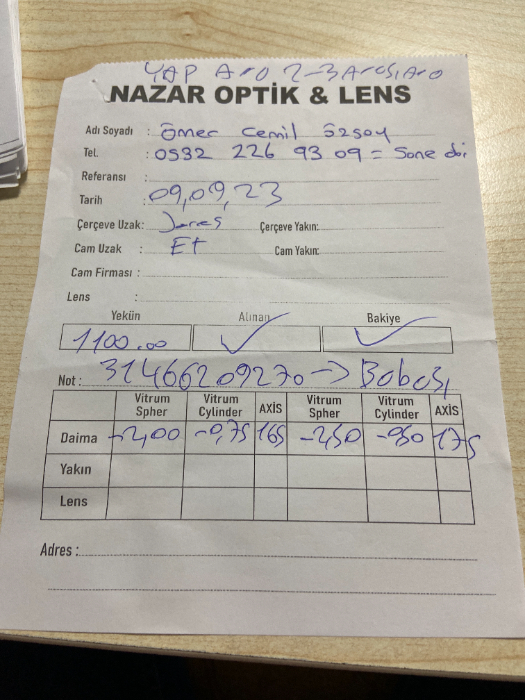 YAP Aro 2-3 Arası, Ara
NAZAR OPTİK & LENS
Adı Soyadı : Ömer Cemil Özsoy
Tel. : 0532 226 93 09 =
Referansı :
Tarih : 09,09,23
Çerçeve Uzak: Çerçeve Yakın:
Cam Uzak : Et Cam Yakın:
Cam Firması :
Lens :
Yekün Alınan Bakiye
1100.00 ✓ ✓
Not : 31466209270 → Babası
Vitrum Spher Vitrum Cylinder AXİS Vitrum Spher Vitrum Cylinder AXİS
Daima -2,00 -0,75 165 -2,50 175
Yakın
Lens
Adres :